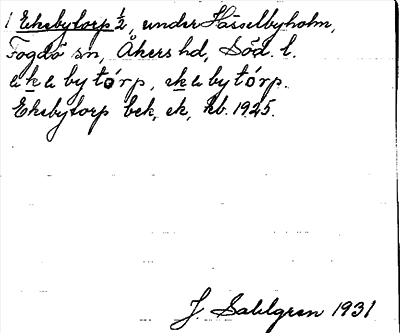 1 Eksbytorp ½, under Hässelbyholm,
Fogdö sn, Åkers hd, Söd. l.
ekebytórp, ekebytórp.
Eksbytorp bek, ek, kb. 1925.
J. Sahlgren 1931